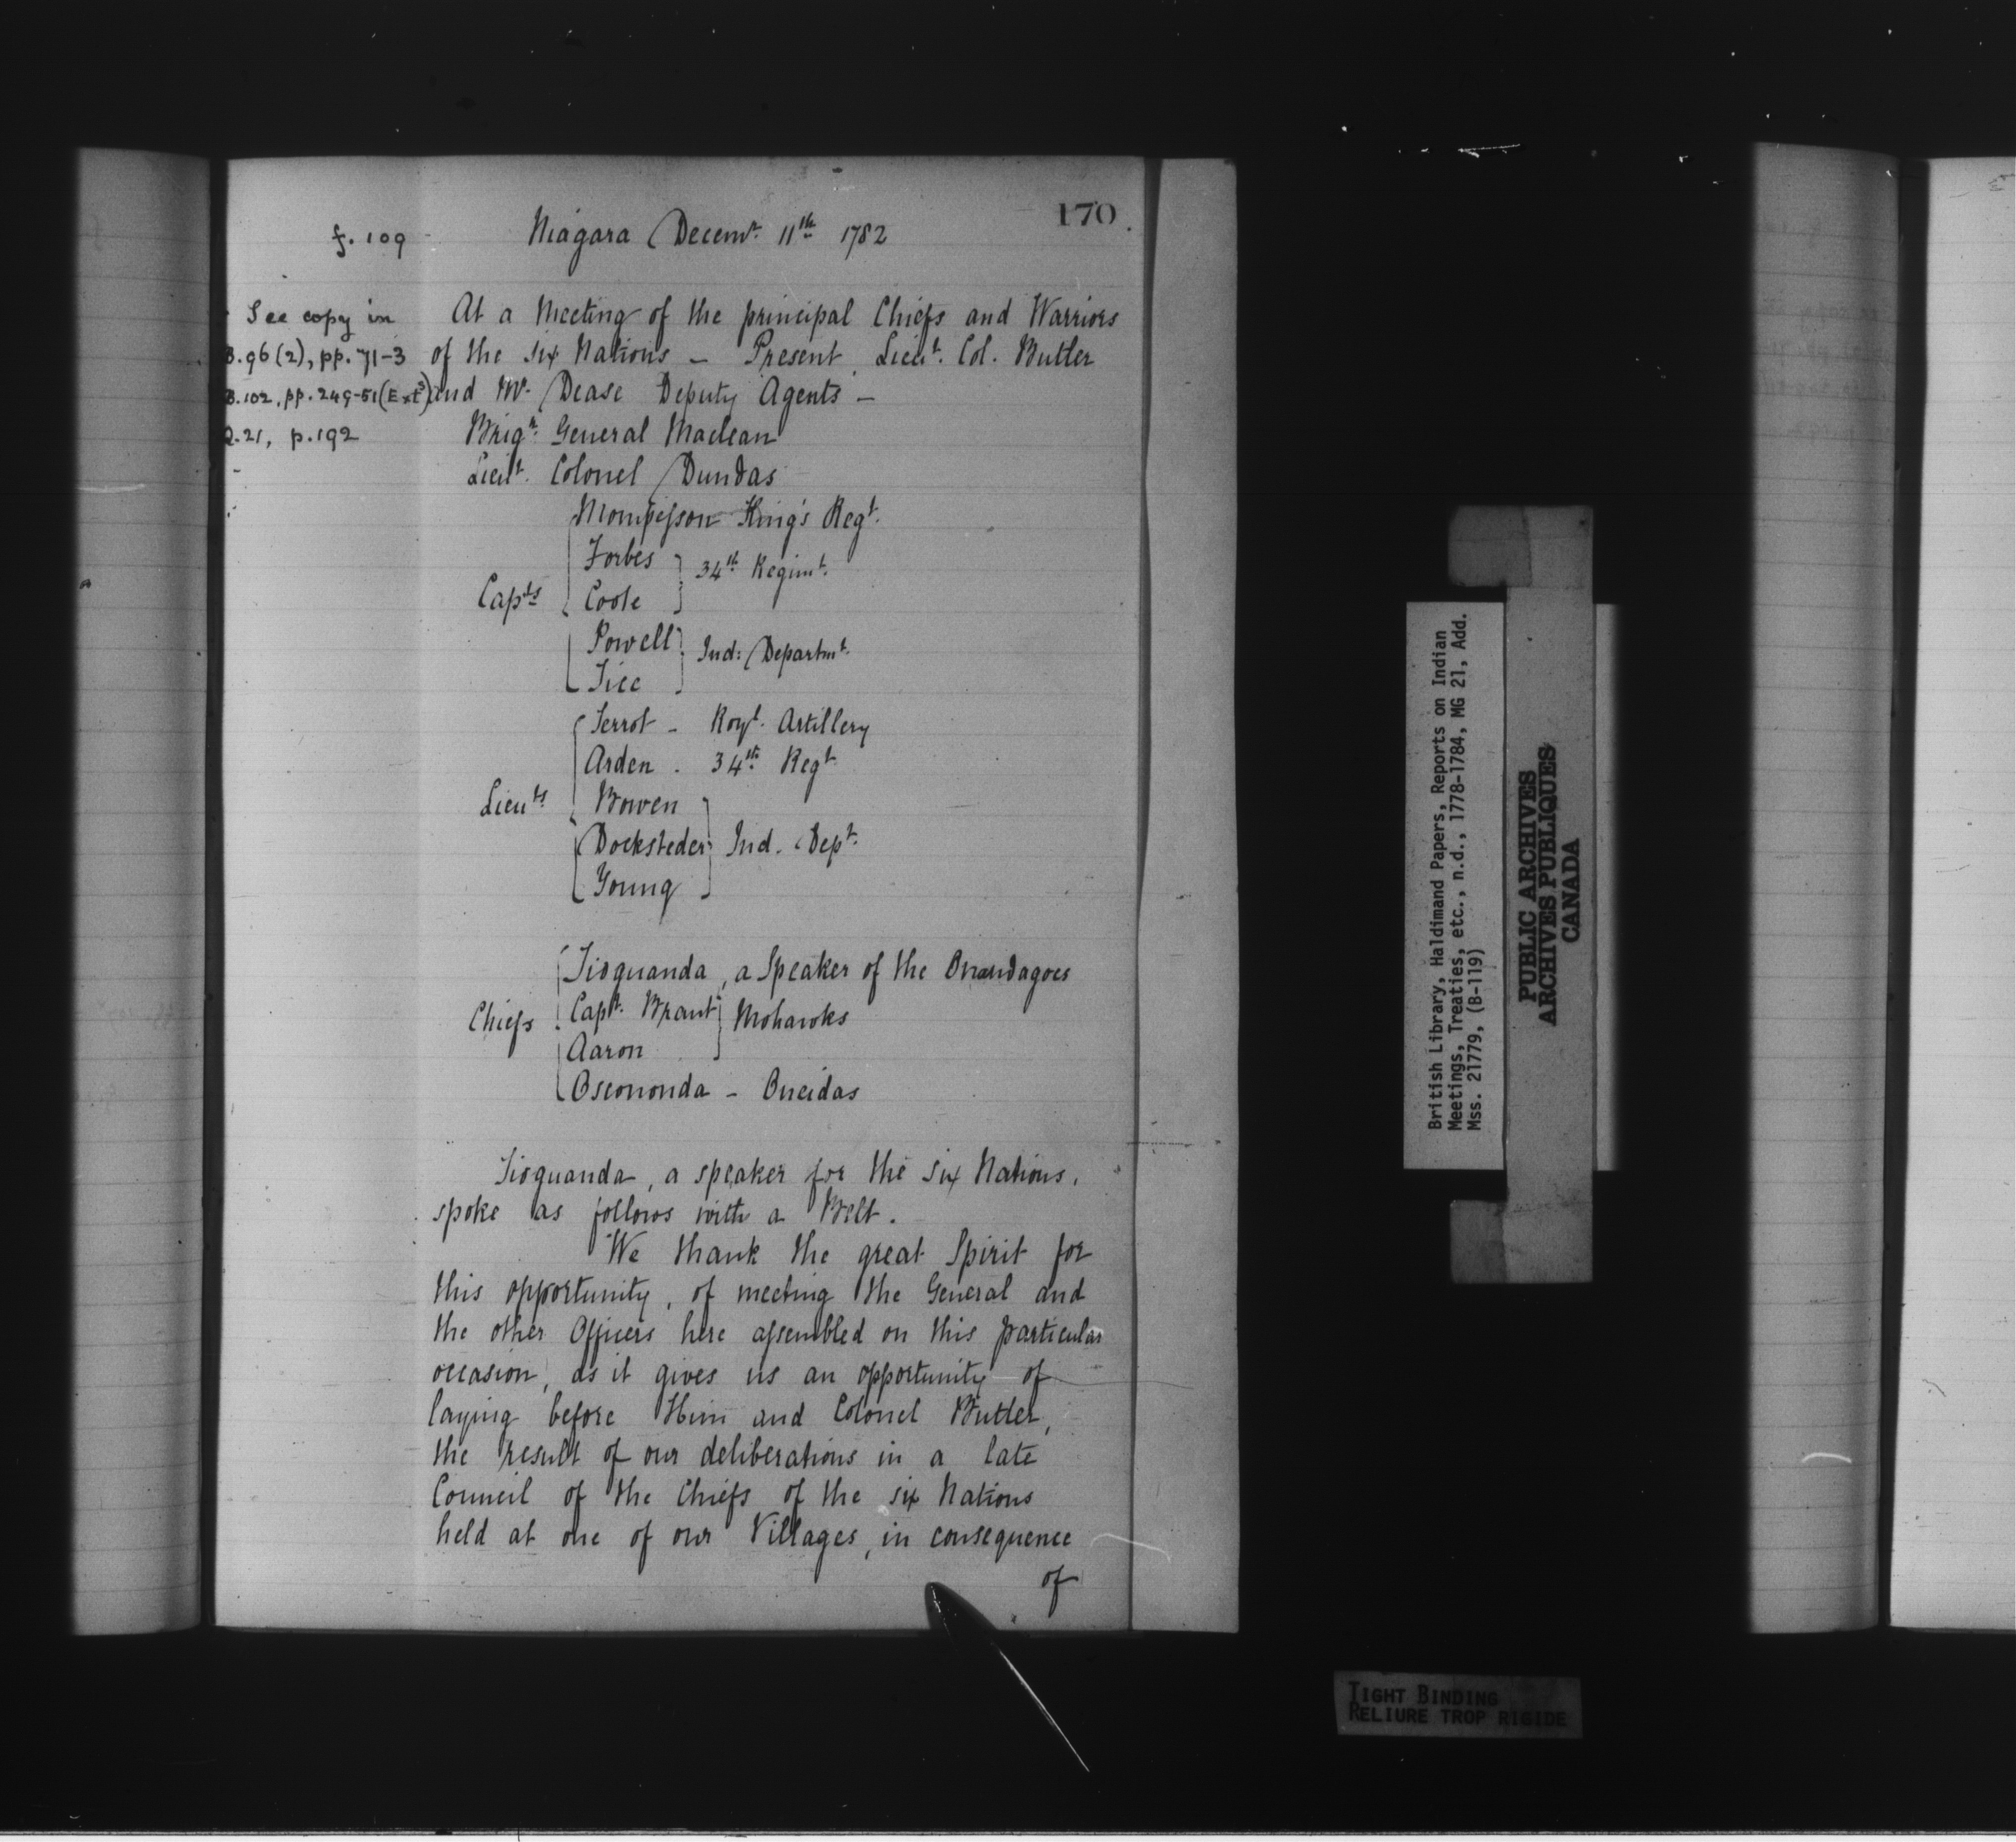 170.
f. 109
Niagara Decemr. 11th 1782
See copy in
B.96(2), pp. 71-3
B.102, pp. 249-51(Exts)
Q.21, p.192
At a Meeting of the principal Chiefs and Warriors
of the six Nations - Present, Lieut. Col. Butler
and Mr. Dease Deputy Agents -
Brigr. General Maclean
Lieut. Colonel Dundas
Capts
Mompesson King's Regt.
Forbes
Coote
34th Regimt.
Powell
Tice
Ind: Departmt.
Lieuts
Terrot - Royl. Artillery
Arden - 34th Regt
Bowen
Docksteder
Young
Ind. Dept.
Chiefs
Tioguanda, a Speaker of the Onondagoes
Capt. Brant
Aaron
Mohawks
Oscononda - Oneidas
Tioguanda, a speaker for the six Nations,
spoke as follows with a Belt.
We thank the great Spirit for
this opportunity, of meeting the General and
the other Officers here assembled on this particular
occasion, as it gives us an opportunity of
laying before Him and Colonel Butler,
the result of our deliberations in a late
Council of the Chiefs of the six Nations
held at one of our Villages, in consequence
of
British Library, Haldimand Papers, Reports on Indian
Meetings, Treaties, etc., n.d., 1778-1784, MG 21, Add.
Mss. 21779, (B-119)
PUBLIC ARCHIVES
ARCHIVES PUBLIQUES
CANADA
TIGHT BINDING
RELIURE TROP RIGIDE